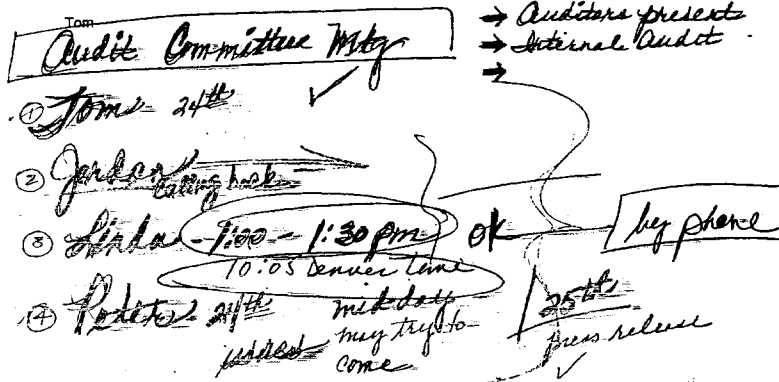 Tom
Audit Committee Mtg
→ Auditors present
→ Internal Audit
→
① Tom - 24th ✓
② Jordan calling back
③ Linda - 1:00 - 1:30 pm OK by phone
10:05 Denver time
④ - 24th mid day
may try to
come
25th
press release ✓